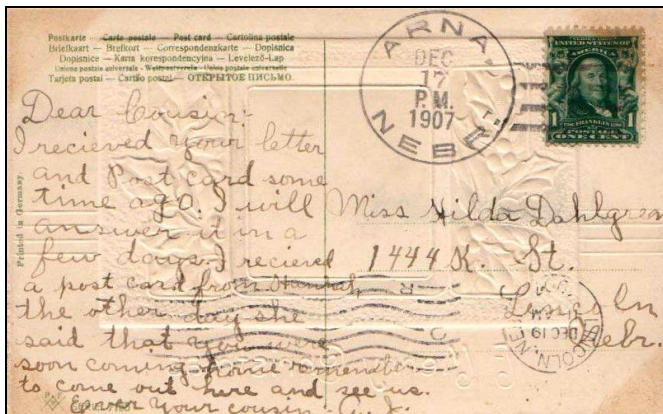 Postkarte — Carte postale — Post card — Cartolina postale
Briefkaart — Brefkort — Correspondenzkarte — Dopisnica
Dopisnice — Karta korespondencyjna — Levelező-Lap
Unione postale universale - Weltpostverein - Union postale universelle
Tarjeta postal — Cartão postal — ОТКРЫТОЕ ПИСЬМО
ARNA.
DEC
17
P.M.
1907
NEBR.
SERIES 1902
UNITED STATES OF
AMERICA
1 FRANKLIN 1
POSTAGE
ONE CENT
Dear Cousin:-
I recieved your letter
and Post card some
time ago. I will
answer it in a
few days. I recieved
a post card from Hannah
the other day she
said that you were
soon coming home remember
to come out here and see us.
your cousin
Printed in Germany.
Miss Hilda Dahlgren
1444 K. St.
Lincoln
Nebr.
LINCOLN, NEB
DEC 19